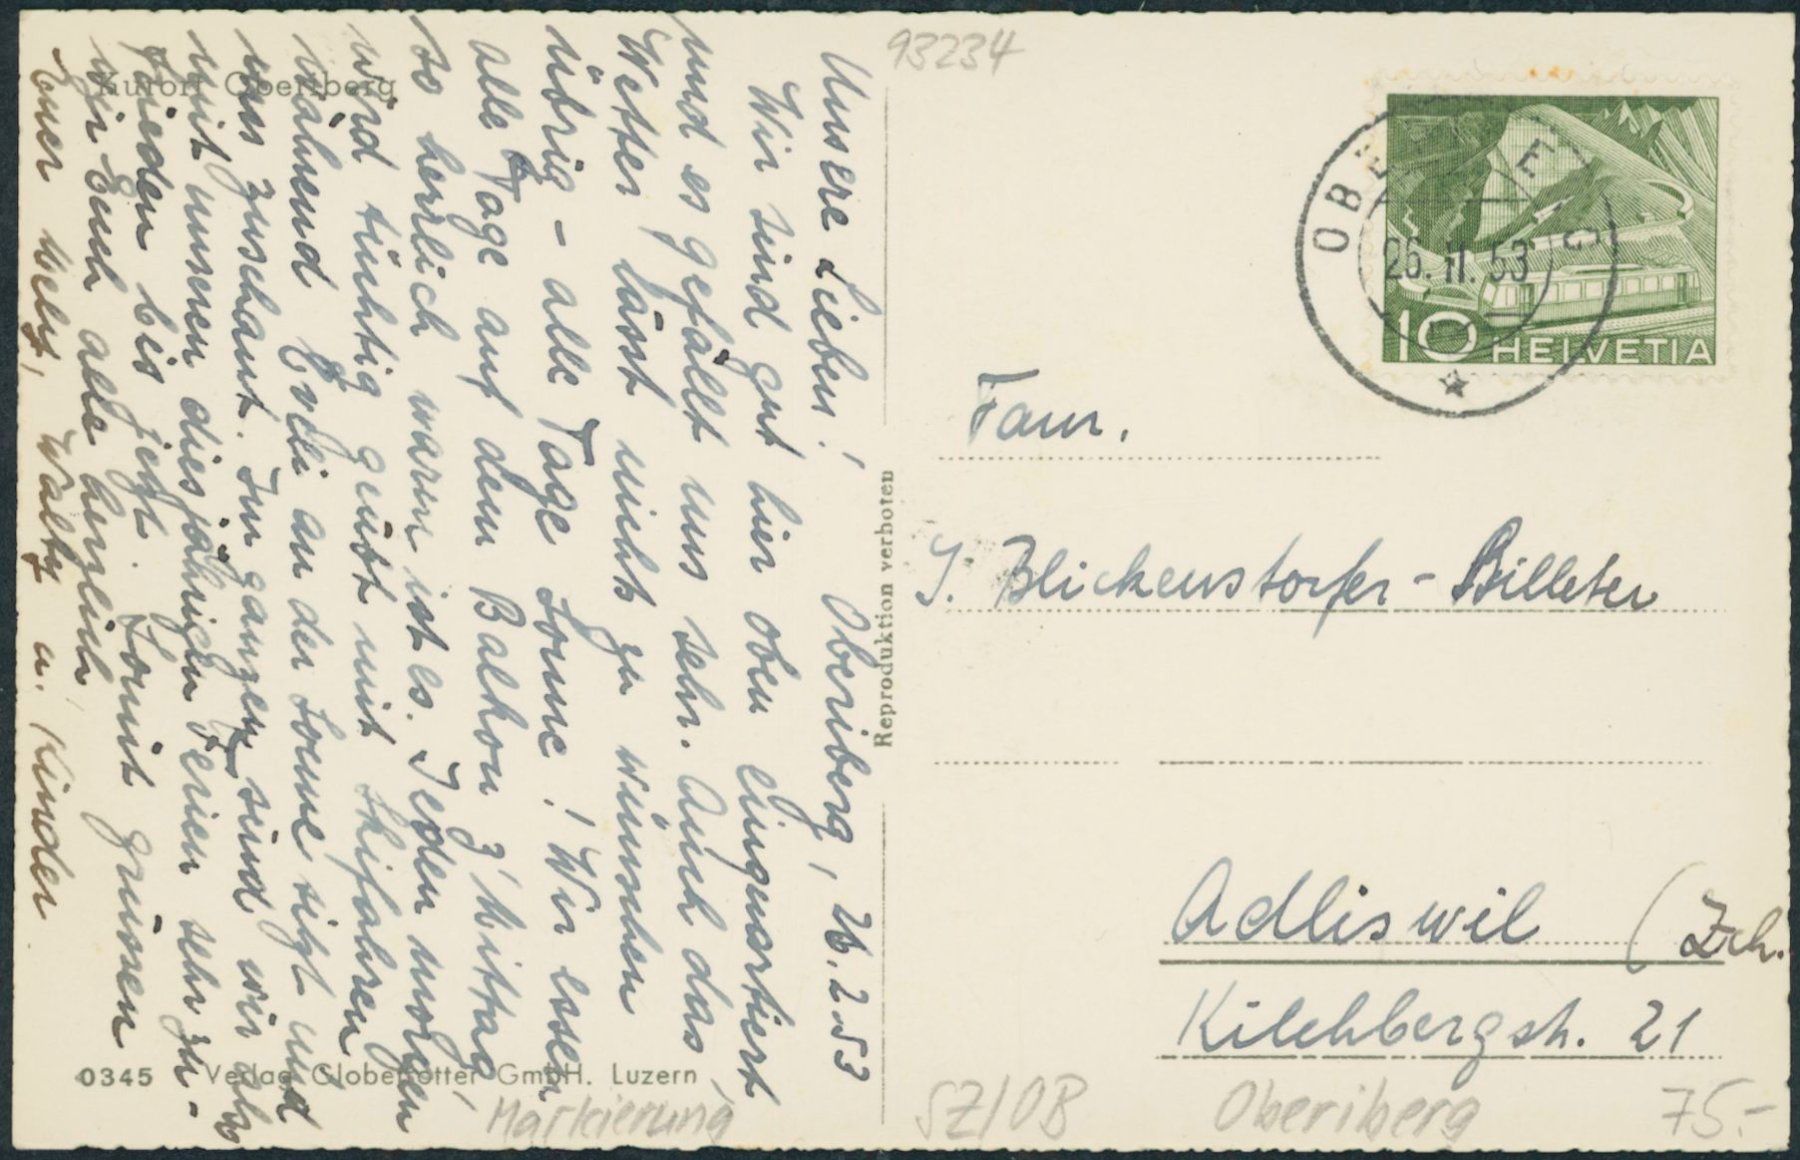 Kurort Oberiberg
93234
Oberiberg, 26.2.53
Unsere Lieben!
Wir sind gut hier oben einquartiert
und es gefällt uns sehr. Auch das
Wetter lässt nichts zu wünschen
übrig – alle Tage Sonne! Wir essen
alle Tage auf dem Balkon z'Mittag,
so herrlich warm ist es. Jeden morgen
wird tüchtig geübt mit Skifahren
während Eveli an der Sonne sitzt und
uns zuschaut. Im ganzen sind wir also
mit unseren diesjährigen Ferien sehr zu-
frieden bis jetzt. Somit grüssen
wir Euch alle herzlich
Euer Walty u. Kinder
0345 Verlag Globetrotter GmbH. Luzern
Reproduktion verboten
OBERIBERG
26. II. 53
10 HELVETIA
Fam.
J. Blickenstorfer-Billeter
Adliswil (Zch.
Kilchbergstr. 21
Markierung
SZ/OB
Oberiberg
75.-